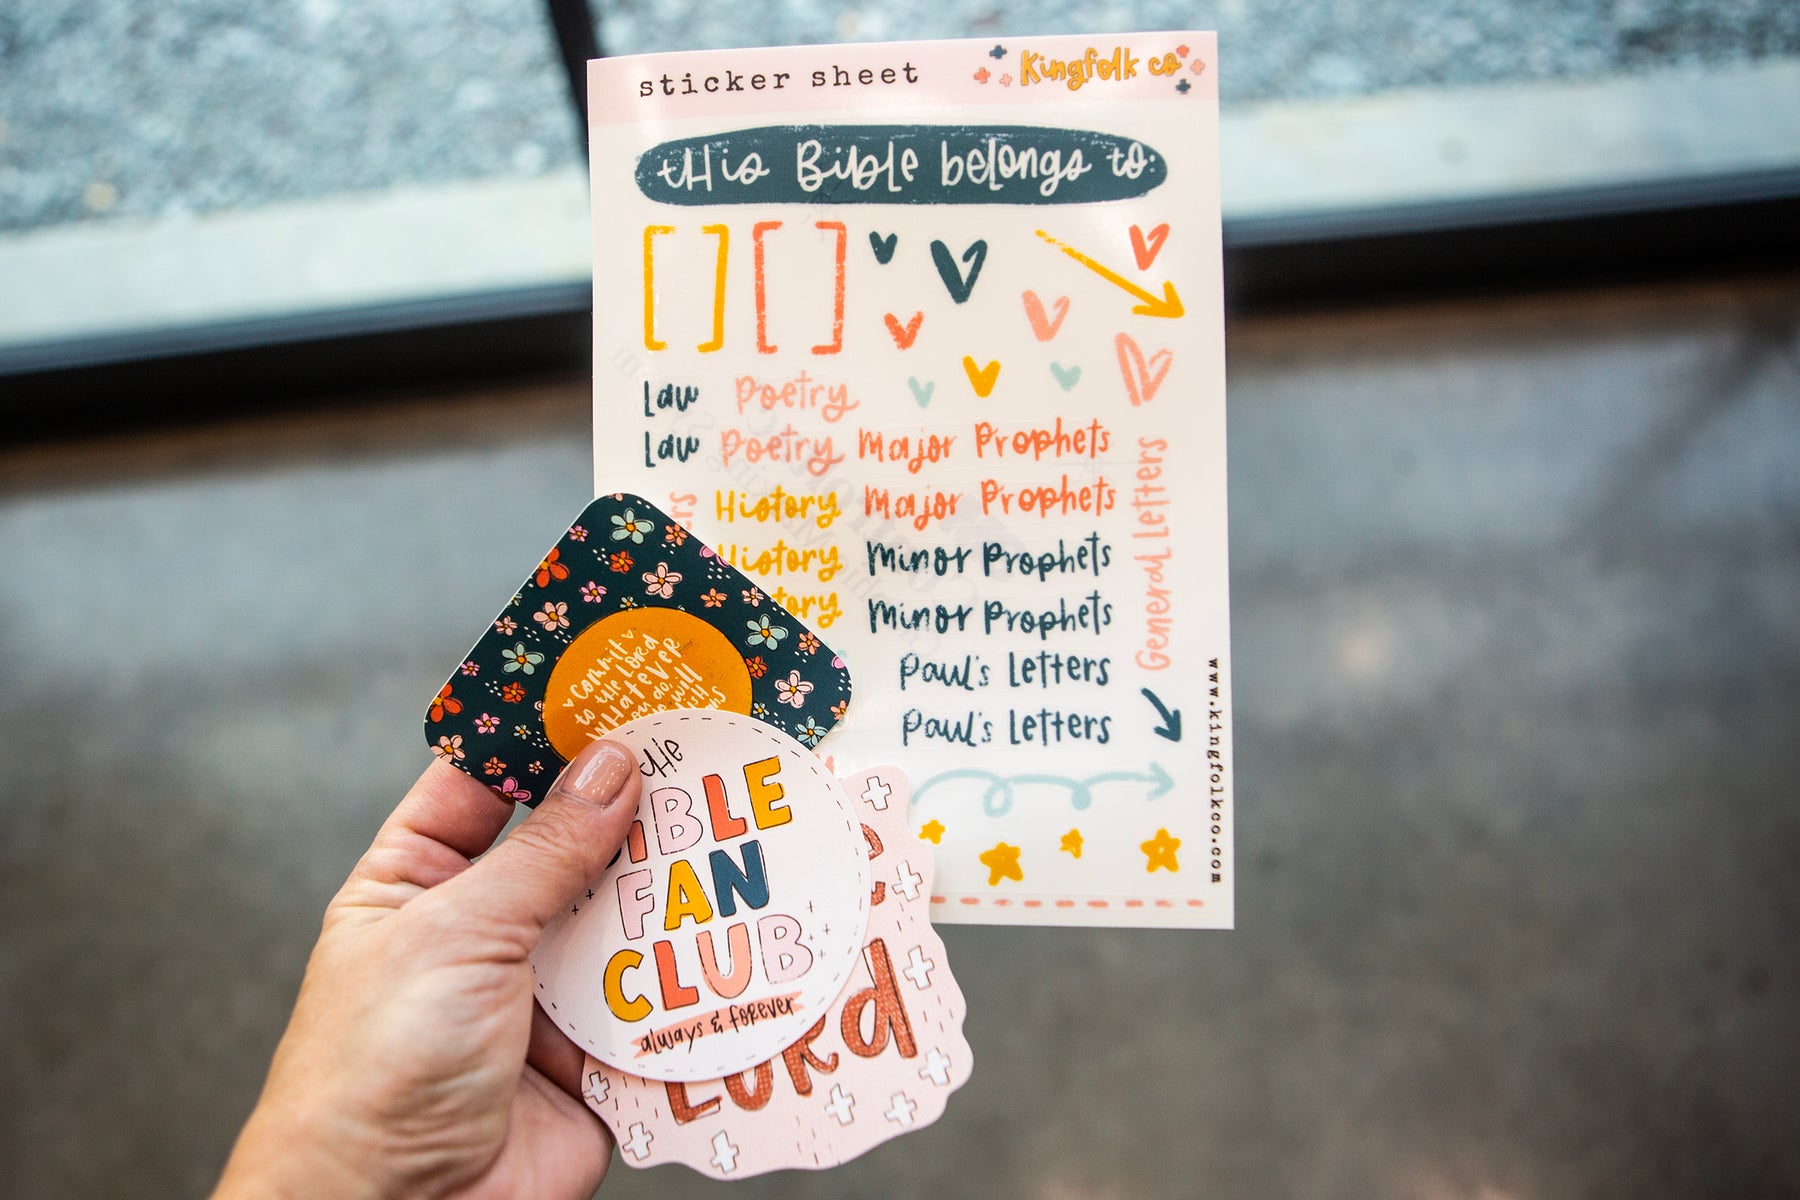 sticker sheet
Kingfolk co
this Bible belongs to:
Law Poetry
Law Poetry Major Prophets
History Major Prophets
History Minor Prophets
Minor Prophets
Paul's Letters
Paul's Letters
General Letters
www.kingfolkco.com
commit
to the Lord
whatever
the
BIBLE
FAN
CLUB
always & forever
Lord